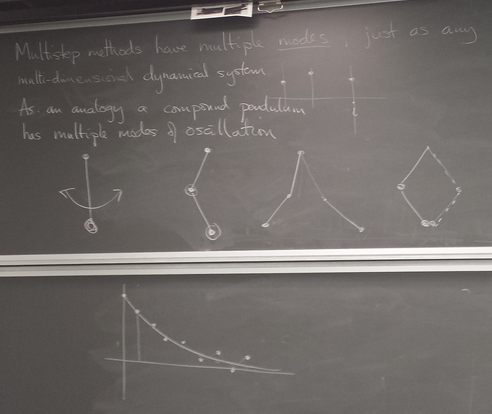 Multistep methods have multiple modes, just as any
multi-dimensional dynamical system.
As an analogy a compound pendulum
has multiple modes of oscillation